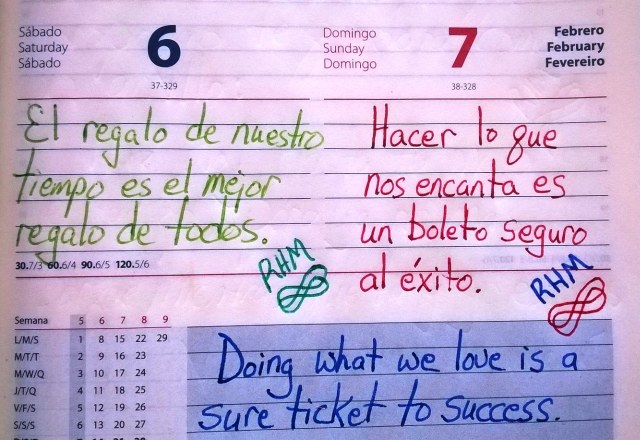 Sábado
Saturday
Sábado
6
37-329
Domingo
Sunday
Domingo
7
38-328
Febrero
February
Fevereiro
El regalo de nuestro
tiempo es el mejor
regalo de todos.
RHM
Hacer lo que
nos encanta es
un boleto seguro
al éxito.
RHM
30.7/3 60.6/4 90.6/5 120.5/6
Semana 5 6 7 8 9
L/M/S 1 8 15 22 29
M/T/T 2 9 16 23
M/W/Q 3 10 17 24
J/T/Q 4 11 18 25
V/F/S 5 12 19 26
S/S/S 6 13 20 27
Doing what we love is a
sure ticket to success.